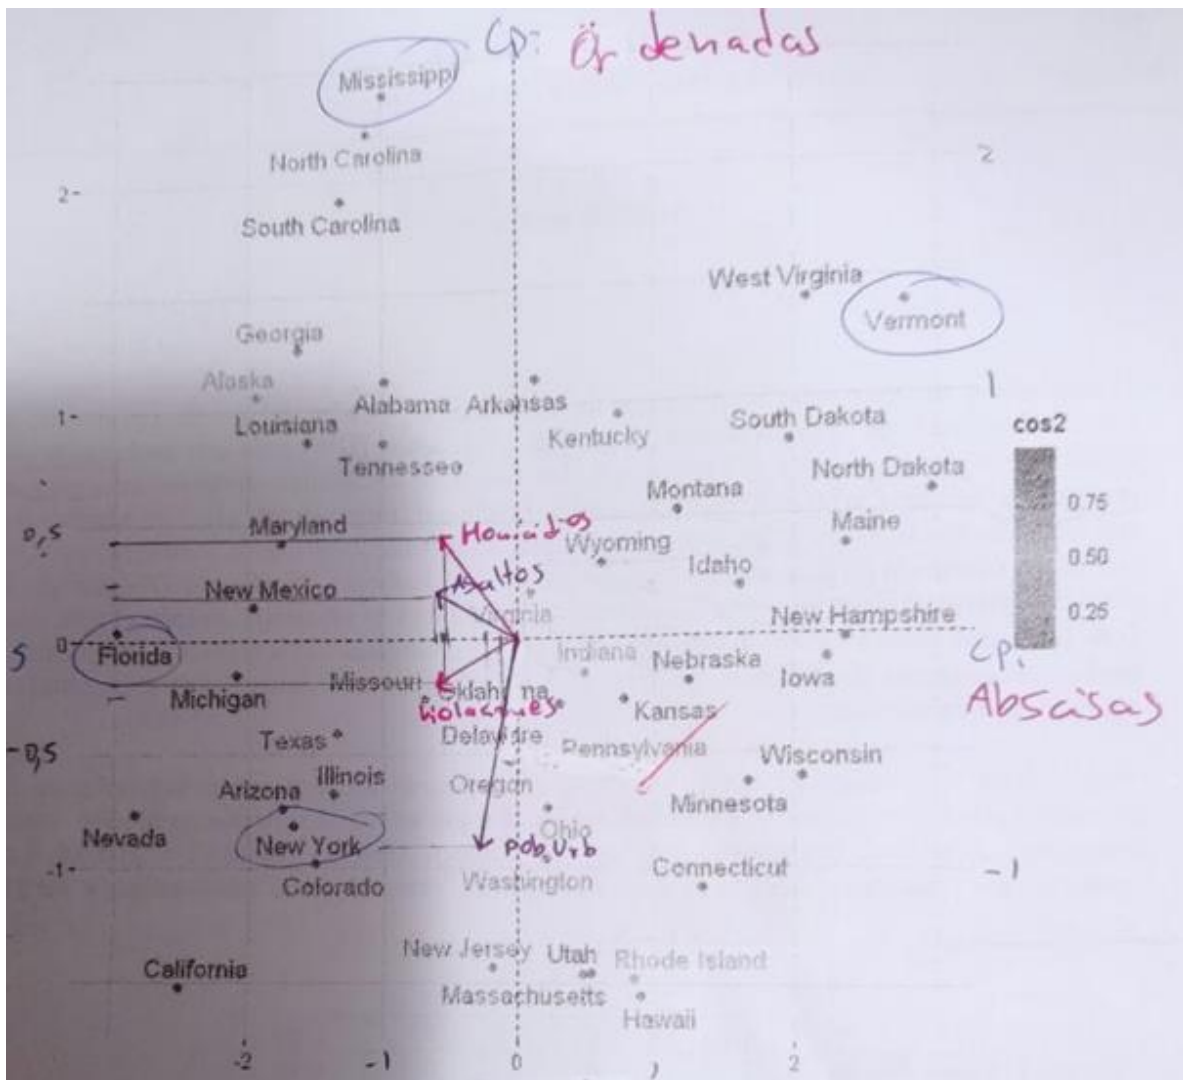 Cp:
Ordenadas
Mississippi
North Carolina
2
2
South Carolina
West Virginia
Vermont
Georgia
Alaska
1
Alabama
Arkansas
1
Louisiana
Kentucky
South Dakota
cos2
Tennessee
North Dakota
Montana
0.75
Maryland
Homicidios
Maine
0,5
Wyoming
0.50
Asaltos
Idaho
New Mexico
Virginia
New Hampshire
0.25
0
S
Florida
Indiana
Nebraska
Cp1
Missouri
Iowa
Michigan
Oklahoma
Abscisas
Violaciones
Kansas
Texas
Delaware
Pennsylvania
-0,5
Wisconsin
Illinois
Oregon
Arizona
Minnesota
Nevada
New York
Ohio
Pob. Urb
-1
Connecticut
-1
Colorado
Washington
New Jersey
Utah
Rhode Island
California
Massachusetts
Hawaii
-2
-1
0
2